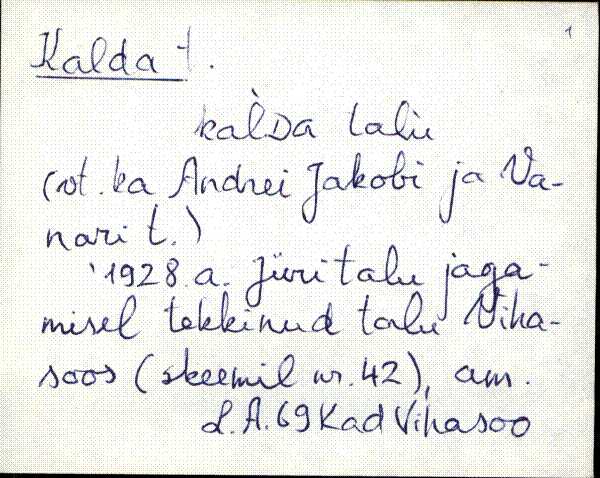 1
Kalda t.
kàlDa talu
(vt. ka Andrei Jakobi ja Va-
nari t.)
1928. a. Jüri talu jaga-
misel tekkinud talu Viha-
soos (skeemil nr. 42), am.
L.A. 69 Kad Vihasoo